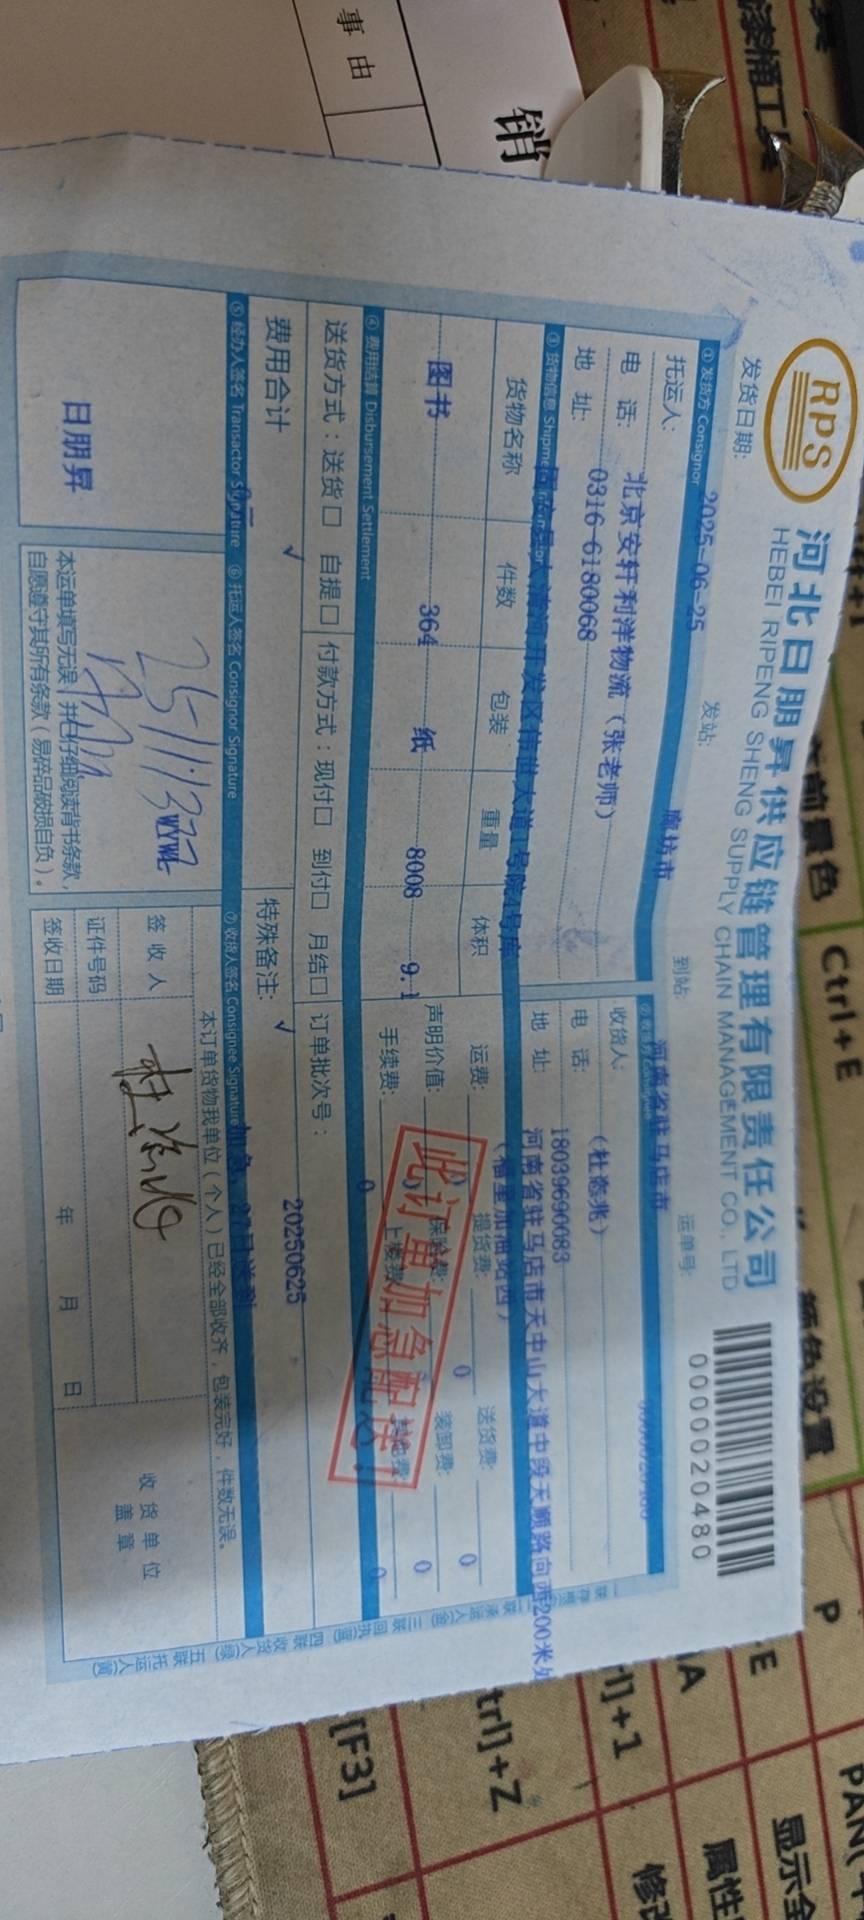 RPS
河北日朋昇供应链管理有限责任公司
HEBEI RIPENG SHENG SUPPLY CHAIN MANAGEMENT CO., LTD
0000020480
发货日期: 2025-06-25 发站: 廊坊市 到站: 河南省驻马店市 运单号:
① 发货方 Consignor
托运人: 北京安轩利洋物流（张老师）
电 话: 0316-6180068
地 址:
开发区 大道1号院4号库
收货人: （杜 兆）
电 话: 18039690083
地 址: 河南省驻马店市天中山大道中段天顺路向西200米处
加油站西）
③ 货物信息
货物名称 件数 包装 重量 体积
图书 364 纸 8008 9.1
运费: 提货费: 0 送货费: 0
声明价值: 保险费: 装卸费: 0
手续费: 0 上楼费: 0
此订单加急配送!
④ 费用结算 Disbursement Settlement
送货方式：送货□ 自提□ 付款方式：现付□ 到付□ 月结□ 订单批次号： 20250625
√ √
费用合计 特殊备注: 加急，27日送到
⑤ 经办人签名 Transactor Signature ⑥ 托运人签名 Consignor Signature ⑦ 收货人签名 Consignee Signature
日朋昇
本运单填写无误，并已仔细阅读背书条款，
自愿遵守其所有条款（易碎品破损自负）。
本订单货物我单位（个人）已经全部收齐，包装完好，件数无误。
签 收 人
证件号码
签收日期 年 月 日
收货单位
盖章
三联回执 四联收货人 五联托运人
事由
销
漆桶工具
前景色
Ctrl+E
颜色设置
P
[F3]
trl]+Z
rl]+1
显示全
属性
修改